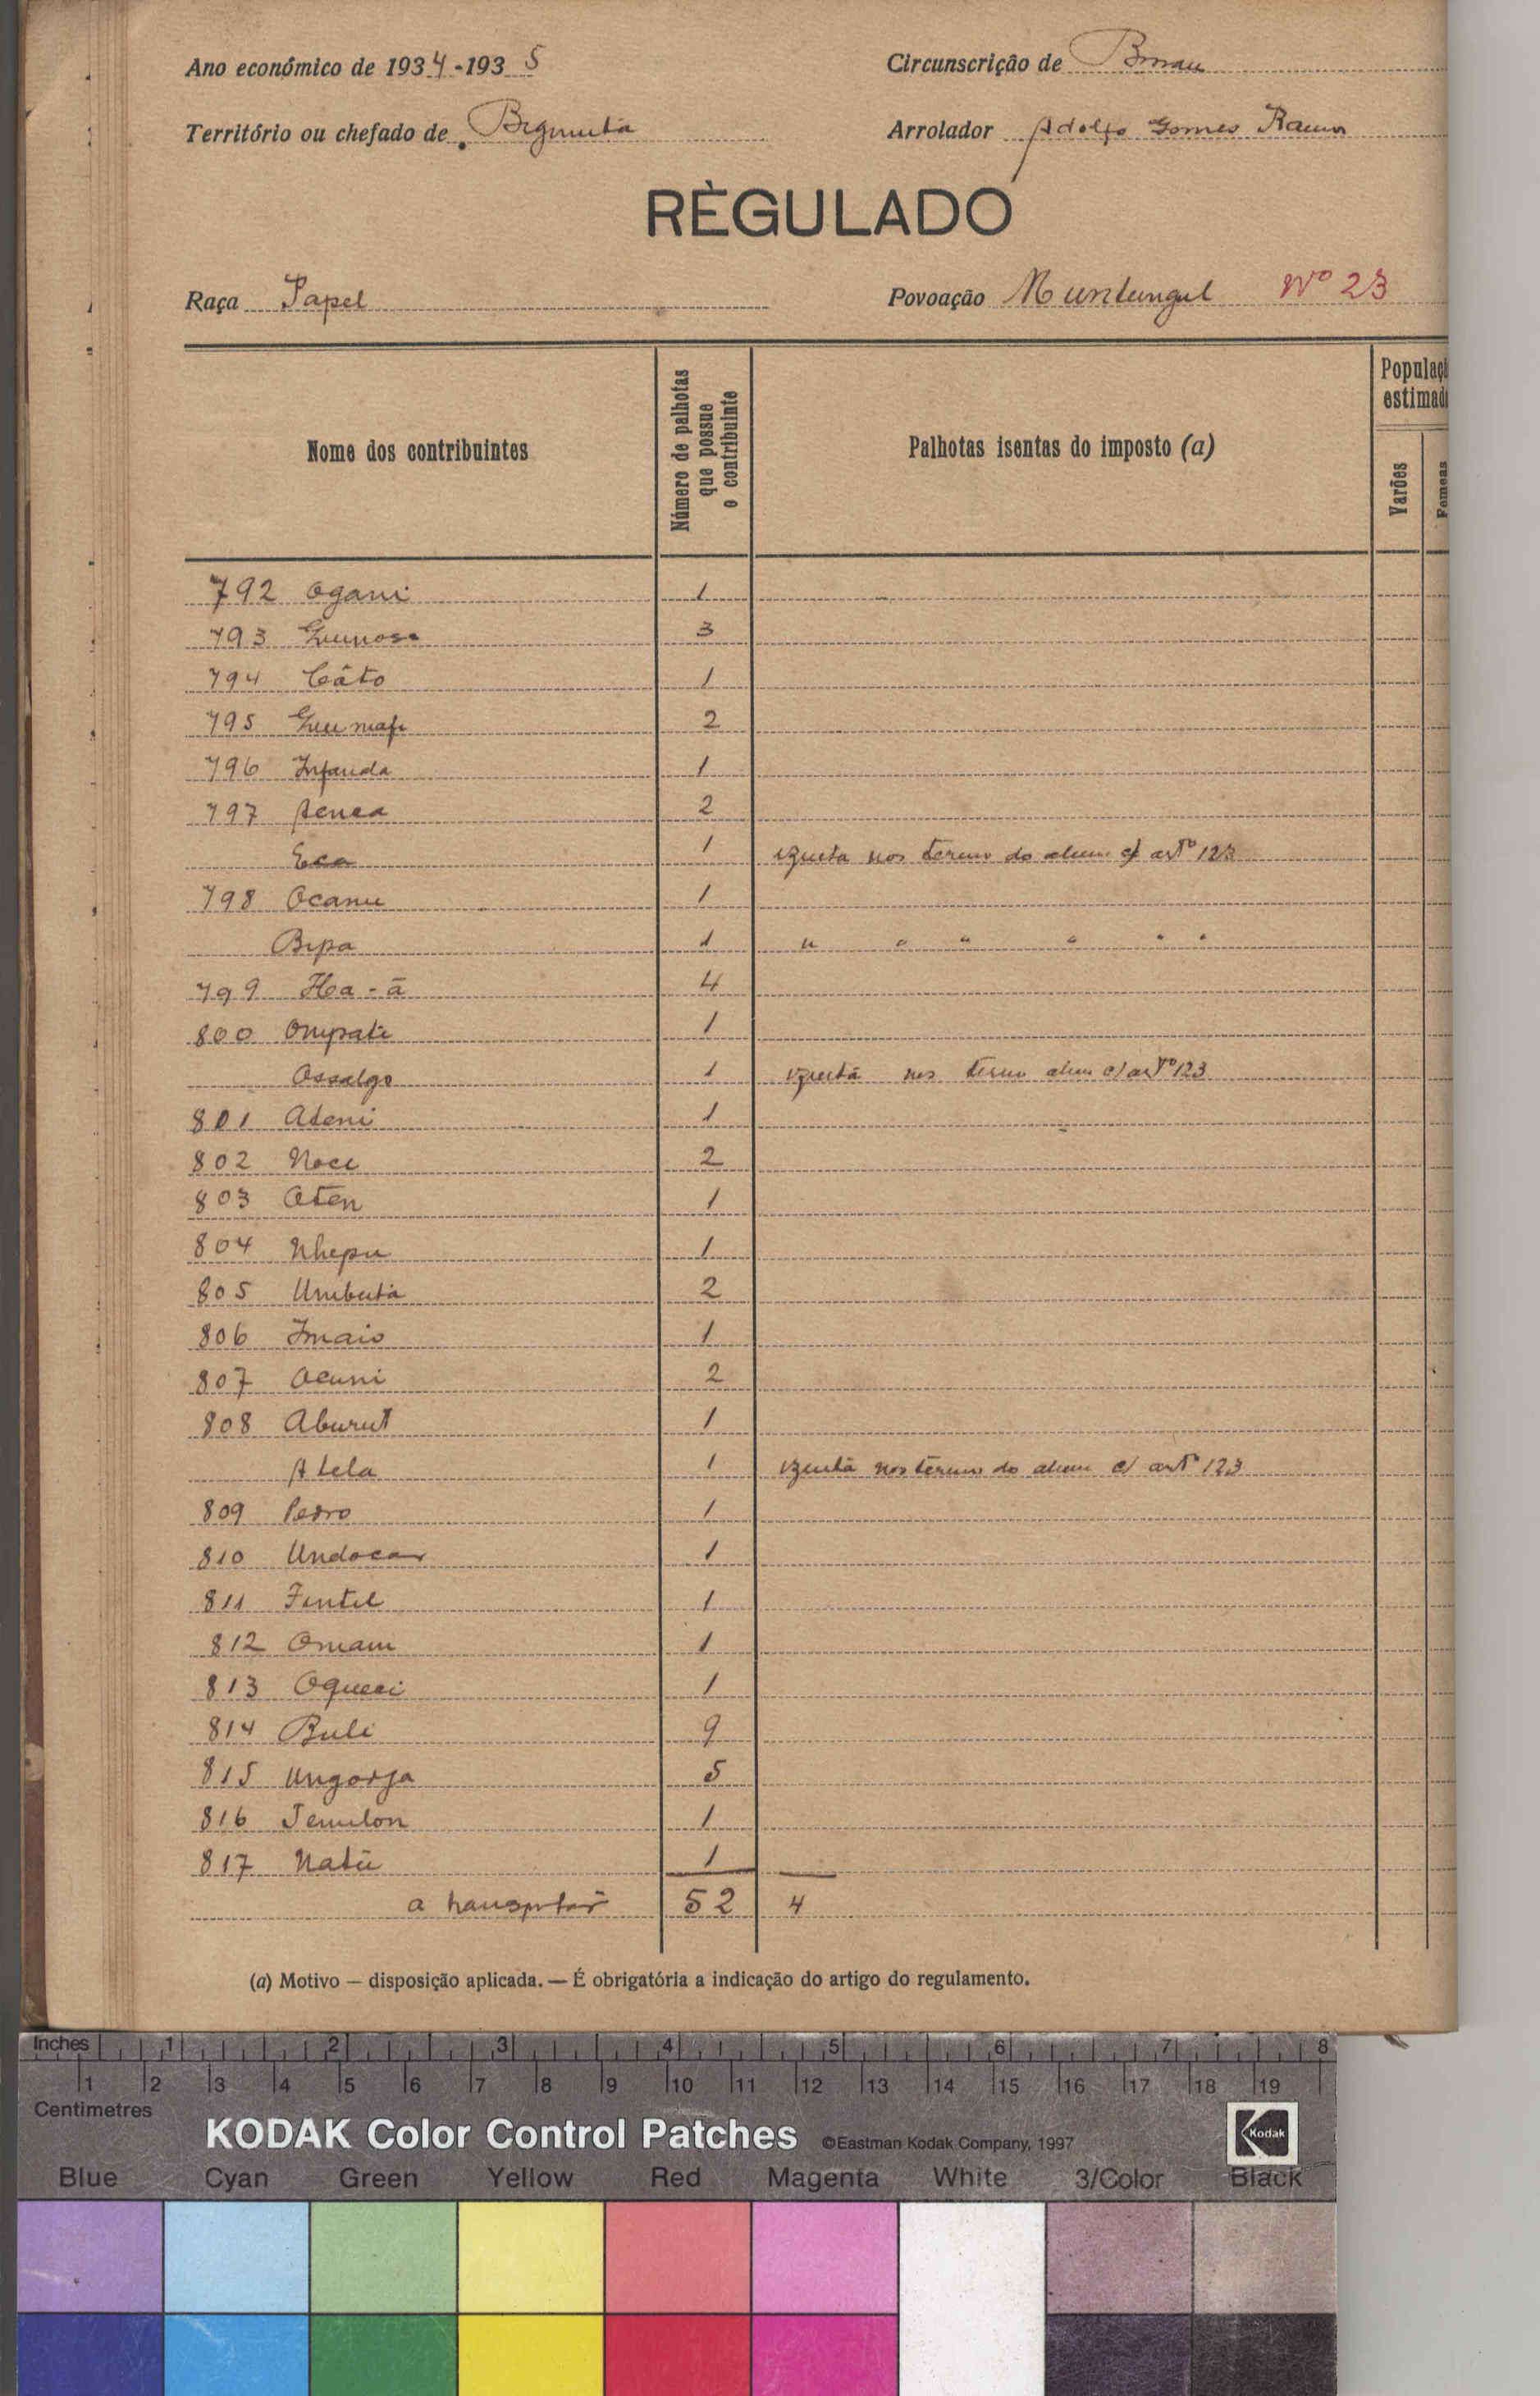 Ano económico de 1934-1935
Circunscrição de Bissau
Território ou chefado de Bigimita
Arrolador Adolfo Gomes Ramos
RÈGULADO
Raça Papel
Povoação Muntungul Nº 23
Nome dos contribuintes
Número de palhotas que possue o contribuinte
Palhotas isentas do imposto (a)
Populaç estimad
Varões
Femeas
792 Ogani 1
793 3
794 Câto 1
795 2
796 Infanda 1
797 Penca 2
Eca 1 nos do c/ artº 123
798 Ocanu 1
Bipa 1 " " " " " "
799 Ha-ã 4
800 Ompati 1
Ossalgo 1 nos c/ artº 123
801 Ateni 1
802 Noce 2
803 Oten 1
804 Nhepu 1
805 Umbutá 2
806 Imaio 1
807 Ocuni 2
808 Aburut 1
Atela 1 nos do c/ artº 123
809 Pedro 1
810 Undocar 1
811 Fintil 1
812 Omam 1
813 Oqueci 1
814 Buli 9
815 Ungorja 5
816 1
817 Natú 1
a 52 4
(a) Motivo — disposição aplicada. — É obrigatória a indicação do artigo do regulamento.
Inches 1 2 3 4 5 6 7 8
1 2 3 4 5 6 7 8 9 10 11 12 13 14 15 16 17 18 19
Centimetres
KODAK Color Control Patches ©Eastman Kodak Company, 1997 Kodak
Blue Cyan Green Yellow Red Magenta White 3/Color Black